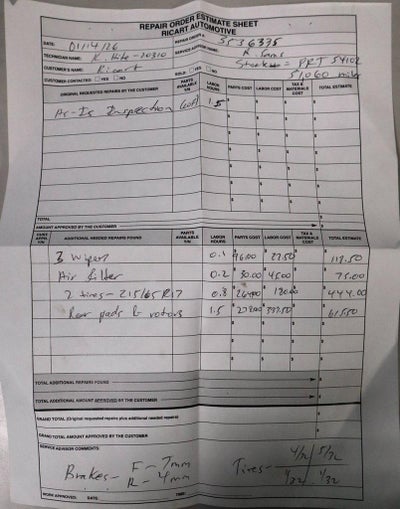 REPAIR ORDER ESTIMATE SHEET
RICART AUTOMOTIVE
DATE: 01/14/26 REPAIR ORDER #: 5536335
TECHNICIAN NAME: SERVICE ADVISOR NAME:
CUSTOMER'S NAME: Ricart SOLD: YES NO Stock# = PRT 54102
CUSTOMER CONTACTED YES NO 51,060 miles
ORIGINAL REQUESTED REPAIRS BY THE CUSTOMER PARTS AVAILABLE Y/N LABOR HOURS PARTS COST LABOR COST TAX & MATERIALS COST TOTAL ESTIMATE
As-Is Inspection 1.5
TOTAL
AMOUNT APPROVED BY THE CUSTOMER
CUST. APPR. Y/N ADDITIONAL NEEDED REPAIRS FOUND PARTS AVAILABLE Y/N LABOR HOURS PARTS COST LABOR COST TAX & MATERIALS COST TOTAL ESTIMATE
3 wipers 0.1 96.00 22.50 118.50
Air filter 0.2 30.00 45.00 75.00
2 tires - 215/65R17 0.8 264.00 180.00 444.00
Rear pads & rotors 1.5 278.00 337.50 615.50
TOTAL ADDITIONAL REPAIRS FOUND
TOTAL ADDITIONAL AMOUNT APPROVED BY THE CUSTOMER
GRAND TOTAL (Original requested repairs plus additional needed repairs)
GRAND TOTAL AMOUNT APPROVED BY THE CUSTOMER
SERVICE ADVISOR COMMENTS:
Brakes - F - 7mm Tires - 4/32 5/32
R - 4mm 4/32 4/32
WORK APPROVED: DATE: TIME: